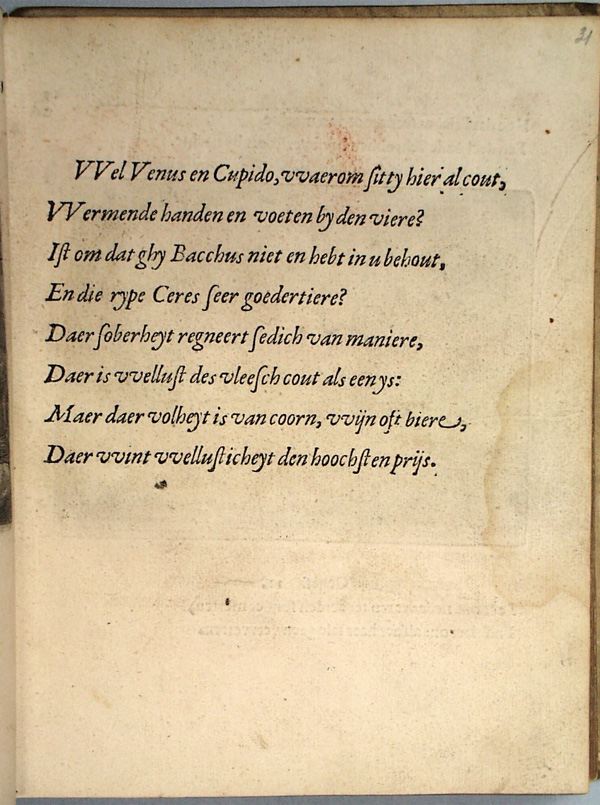 31
VVel Venus en Cupido, vvaerom ſitty hier al cout,
VVermende handen en voeten by den viere?
Iſt om dat ghy Bacchus niet en hebt in u behout,
En die rype Ceres ſeer goedertiere?
Daer ſoberheyt regneert ſedich van maniere,
Daer is vvelluſt des vleeſch cout als een ys:
Maer daer volheyt is van coorn, vvijn oft biere,
Daer vvint vvelluſticheyt den hoochſten prijs.